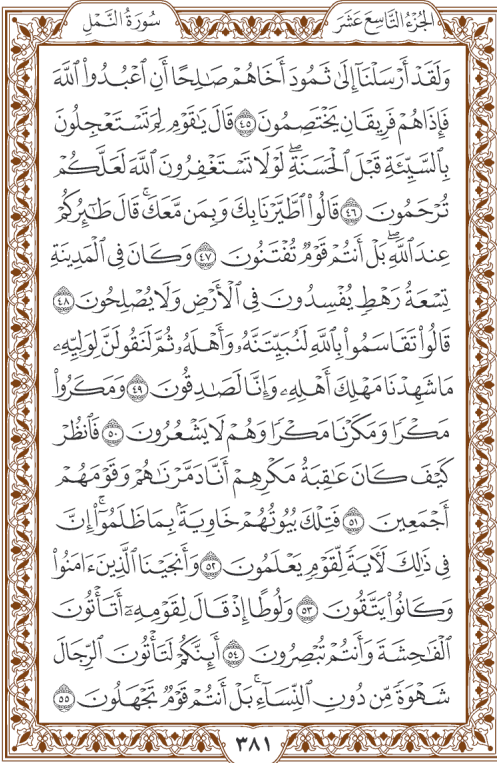 الجُزْءُ التَّاسِعَ عَشَرَ
سُورَةُ النَّمْلِ
وَلَقَدْ أَرْسَلْنَآ إِلَىٰ ثَمُودَ أَخَاهُمْ صَٰلِحًا أَنِ ٱعْبُدُوا۟ ٱللَّهَ
فَإِذَا هُمْ فَرِيقَانِ يَخْتَصِمُونَ ٤٥ قَالَ يَٰقَوْمِ لِمَ تَسْتَعْجِلُونَ
بِٱلسَّيِّئَةِ قَبْلَ ٱلْحَسَنَةِۖ لَوْلَا تَسْتَغْفِرُونَ ٱللَّهَ لَعَلَّكُمْ
تُرْحَمُونَ ٤٦ قَالُوا۟ ٱطَّيَّرْنَا بِكَ وَبِمَن مَّعَكَۚ قَالَ طَٰٓئِرُكُمْ
عِندَ ٱللَّهِۖ بَلْ أَنتُمْ قَوْمٌ تُفْتَنُونَ ٤٧ وَكَانَ فِى ٱلْمَدِينَةِ
تِسْعَةُ رَهْطٍ يُفْسِدُونَ فِى ٱلْأَرْضِ وَلَا يُصْلِحُونَ ٤٨
قَالُوا۟ تَقَاسَمُوا۟ بِٱللَّهِ لَنُبَيِّتَنَّهُۥ وَأَهْلَهُۥ ثُمَّ لَنَقُولَنَّ لِوَلِيِّهِۦ
مَا شَهِدْنَا مَهْلِكَ أَهْلِهِۦ وَإِنَّا لَصَٰدِقُونَ ٤٩ وَمَكَرُوا۟
مَكْرًا وَمَكَرْنَا مَكْرًا وَهُمْ لَا يَشْعُرُونَ ٥٠ فَٱنظُرْ
كَيْفَ كَانَ عَٰقِبَةُ مَكْرِهِمْ أَنَّا دَمَّرْنَٰهُمْ وَقَوْمَهُمْ
أَجْمَعِينَ ٥١ فَتِلْكَ بُيُوتُهُمْ خَاوِيَةًۢ بِمَا ظَلَمُوٓا۟ۗ إِنَّ
فِى ذَٰلِكَ لَءَايَةً لِّقَوْمٍ يَعْلَمُونَ ٥٢ وَأَنجَيْنَا ٱلَّذِينَ ءَامَنُوا۟
وَكَانُوا۟ يَتَّقُونَ ٥٣ وَلُوطًا إِذْ قَالَ لِقَوْمِهِۦٓ أَتَأْتُونَ
ٱلْفَٰحِشَةَ وَأَنتُمْ تُبْصِرُونَ ٥٤ أَئِنَّكُمْ لَتَأْتُونَ ٱلرِّجَالَ
شَهْوَةً مِّن دُونِ ٱلنِّسَآءِۚ بَلْ أَنتُمْ قَوْمٌ تَجْهَلُونَ ٥٥
٣٨١